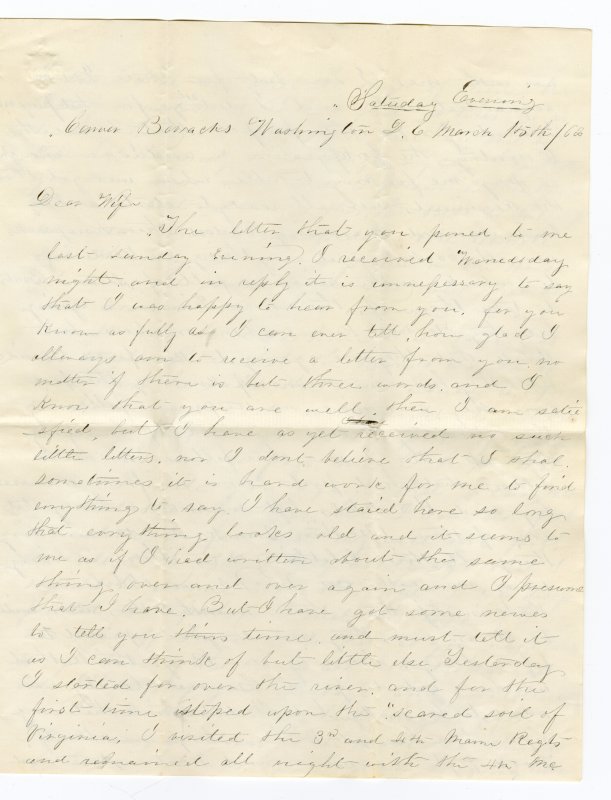 Satuday Evening
Carver Barracks Washington D. C March 15th /62
Dear Wife
The letter that you pened to me
last sunday Evening, I received Wenedsday
night, and in reply it is unnessessary to say
that I was happy to hear from you, for you
know as fully as I can ever tell, how glad I
allways am to receive a letter from you no
matter if there is but three words, and I
know that you are well, then I am satis
sfied, but I have as yet received no such
little letters, nor I dont believe that I shal.
sometimes it is hard work for me to find
enything to say. I have staied here so long
that evrything looks old and it seems to
me as if I had written about the same
thing over and over again and I presume
that I have. But I have got some newes
to tell you this time, and must tell it
as I can think of but little else Yesterday
I started for over the river, and for the
first time stoped upon the "scared soil of
Virginia, I visited the 3rd and 4th Maine Regts
and remained all night with the 4th Me